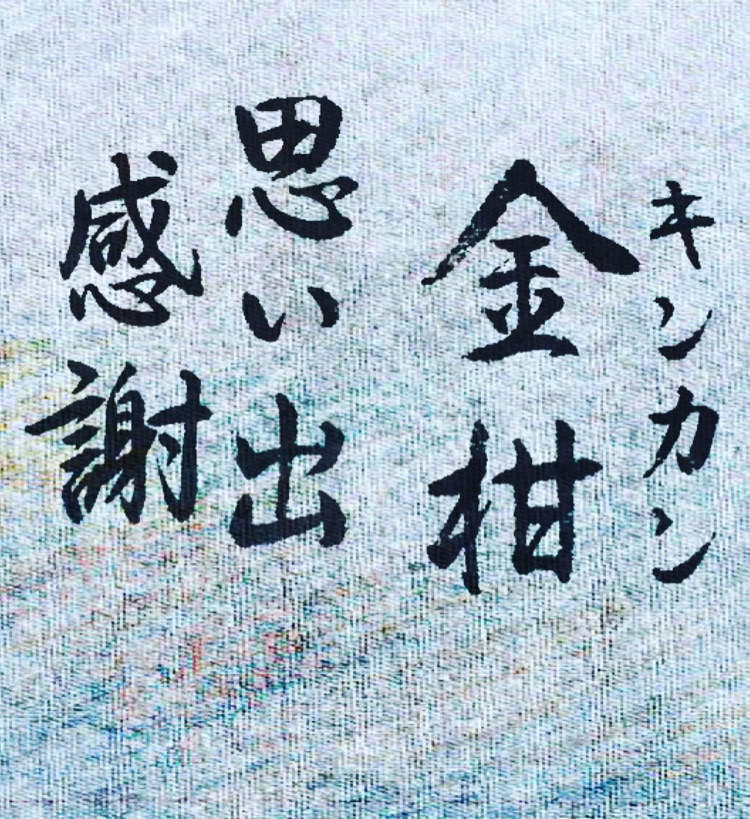 キンカン
金柑
思い出
感謝